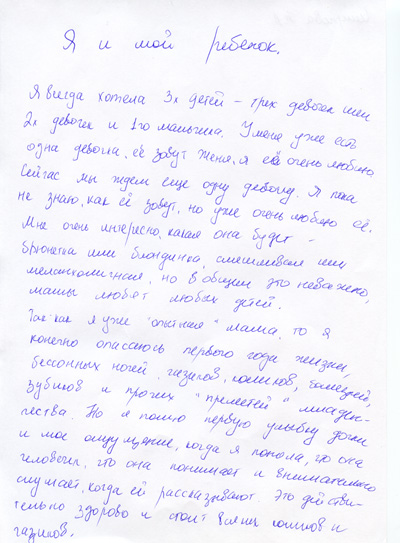 Я и мой ребенок.
Я всегда хотела 3х детей – трех девочек или
2х девочек и 1го мальчика. У меня уже есть
одна девочка, её зовут Женя, я её очень люблю.
Сейчас мы ждем еще одну девочку. Я пока
не знаю, как её зовут, но уже очень люблю её.
Мне очень интересно, какая она будет –
брюнетка или блондинка, смешливая или
меланхоличная, но в общем это неважно,
мамы любят любых детей.
Так как я уже "опытная" мама, то я
конечно опасаюсь первого года жизни,
бессонных ночей, газиков, коликов, болезней,
зубиков и прочих "прелестей" младен-
чества. Но я помню первую улыбку дочи
и мое ощущение, когда я поняла, что она
человечек, что она понимает и внимательно
слушает, когда ей рассказывают. Это действи-
тельно здорово и стоит всяких коликов и
газиков.